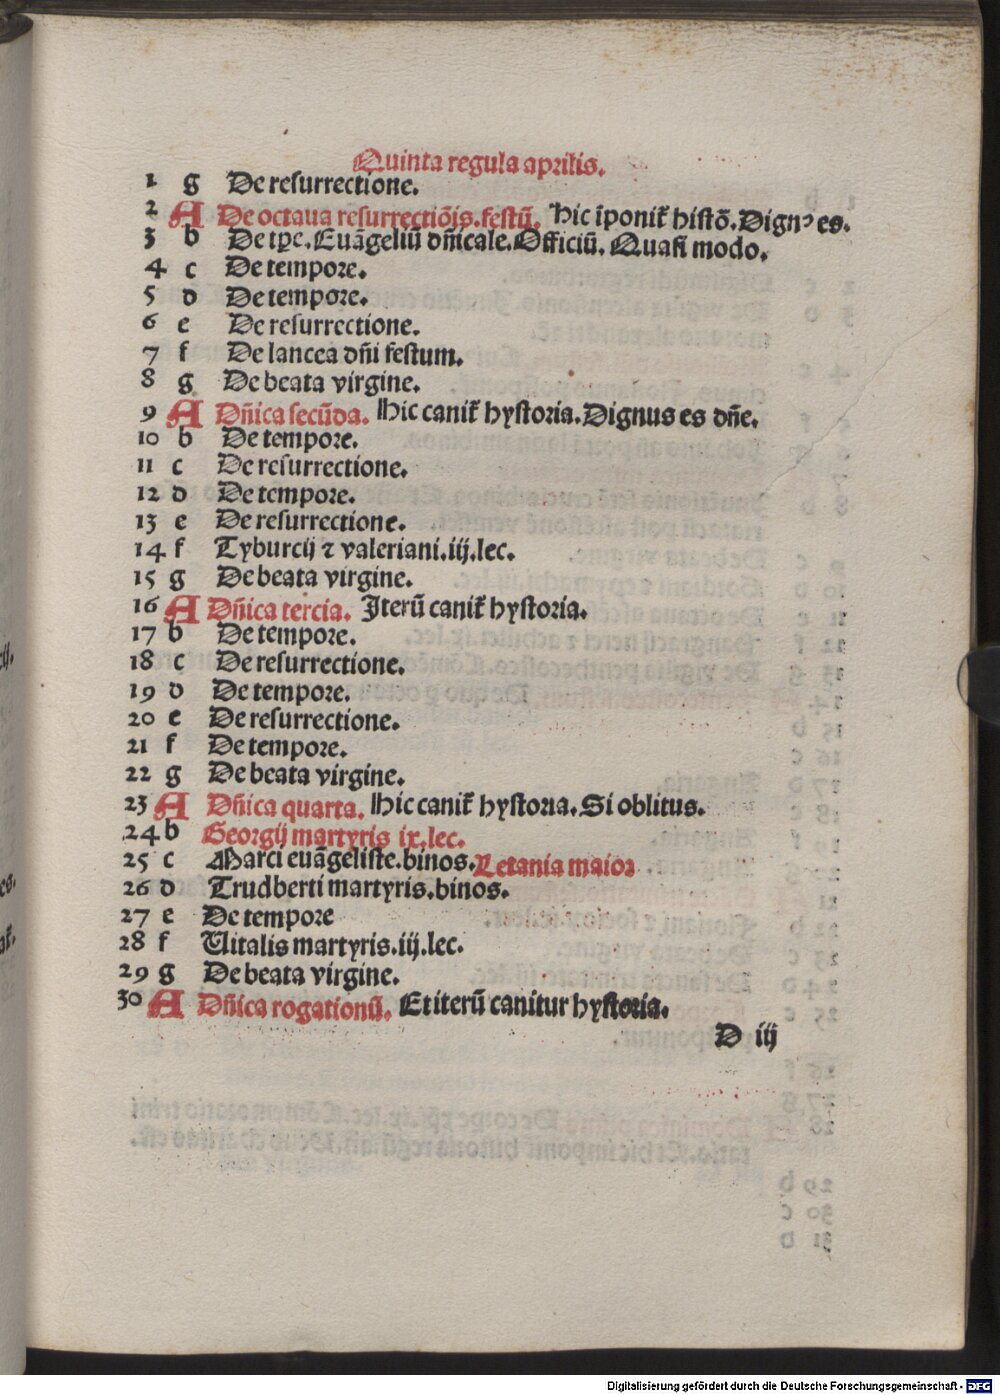 Quinta regula aprilis.
1 g De resurrectione.
2 A De octaua resurrectiõis.festũ. Hic ĩponit᷑ histõ.Dignꝰ es.
3 b De tpe.Euãgeliũ dñicale.Officiũ. Quasi modo.
4 c De tempore.
5 d De tempore.
6 e De resurrectione.
7 f De lancea dñi festum.
8 g De beata virgine.
9 A Dñica secũda. Hic canit᷑ hystoria.Dignus es dñe.
10 b De tempore.
11 c De resurrectione.
12 d De tempore.
13 e De resurrectione.
14 f Tyburcij ⁊ valeriani.iij.lec.
15 g De beata virgine.
16 A Dñica tercia. Iterũ canit᷑ hystoria.
17 b De tempore.
18 c De resurrectione.
19 d De tempore.
20 e De resurrectione.
21 f De tempore.
22 g De beata virgine.
23 A Dñica quarta. Hic canit᷑ hystoria.Si oblitus.
24 b Georgij martyris ix.lec.
25 c Marci euãgeliste.binos.Letania maior
26 d Trudberti martyris.binos.
27 e De tempore
28 f Uitalis martyris.iij.lec.
29 g De beata virgine.
30 A Dñica rogationũ. Et iterũ canitur hystoria.
D iij
Digitalisierung gefördert durch die Deutsche Forschungsgemeinschaft - DFG